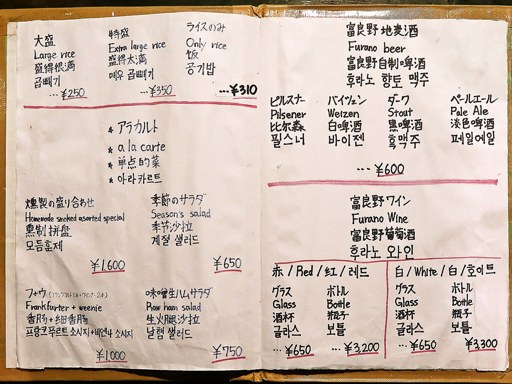 大盛
Large rice
盛得很满
곱빼기
…¥250
特盛
Extra large rice
盛得太满
매우 곱빼기
…¥350
ライスのみ
Only rice
饭
공기밥
…¥310
* アラカルト
* a la carte
* 单点的菜
* 아라카르트
燻製の盛り合わせ
Homemade smoked asorted special
熏制拼盘
모듬훈제
¥1,600
季節のサラダ
Season's salad
季节沙拉
계절 샐러드
¥650
Frankfurter + weenie
香肠 + 细香肠
프랑크푸르트 소시지+비엔나 소시지
¥1000
味噌生ハムサラダ
Raw ham salad
生火腿沙拉
날햄 샐러드
¥750
富良野 地麦酒
Furano beer
富良野自制啤酒
후라노 향토 맥주
ピルスナー
Pilsener
比尔森
필스너
バイツェン
Weizen
白啤酒
바이젠
ダーク
Stout
黑啤酒
흑맥주
ペールエール
Pale Ale
淡色啤酒
페일에일
…¥600
富良野ワイン
Furano Wine
富良野葡萄酒
후라노 와인
赤/Red/红/레드
グラス
Glass
酒杯
글라스
…¥650
ボトル
Bottle
瓶子
보틀
…¥3,200
白/White/白/화이트
グラス
Glass
酒杯
글라스
…¥650
ボトル
Bottle
瓶子
보틀
¥3,300